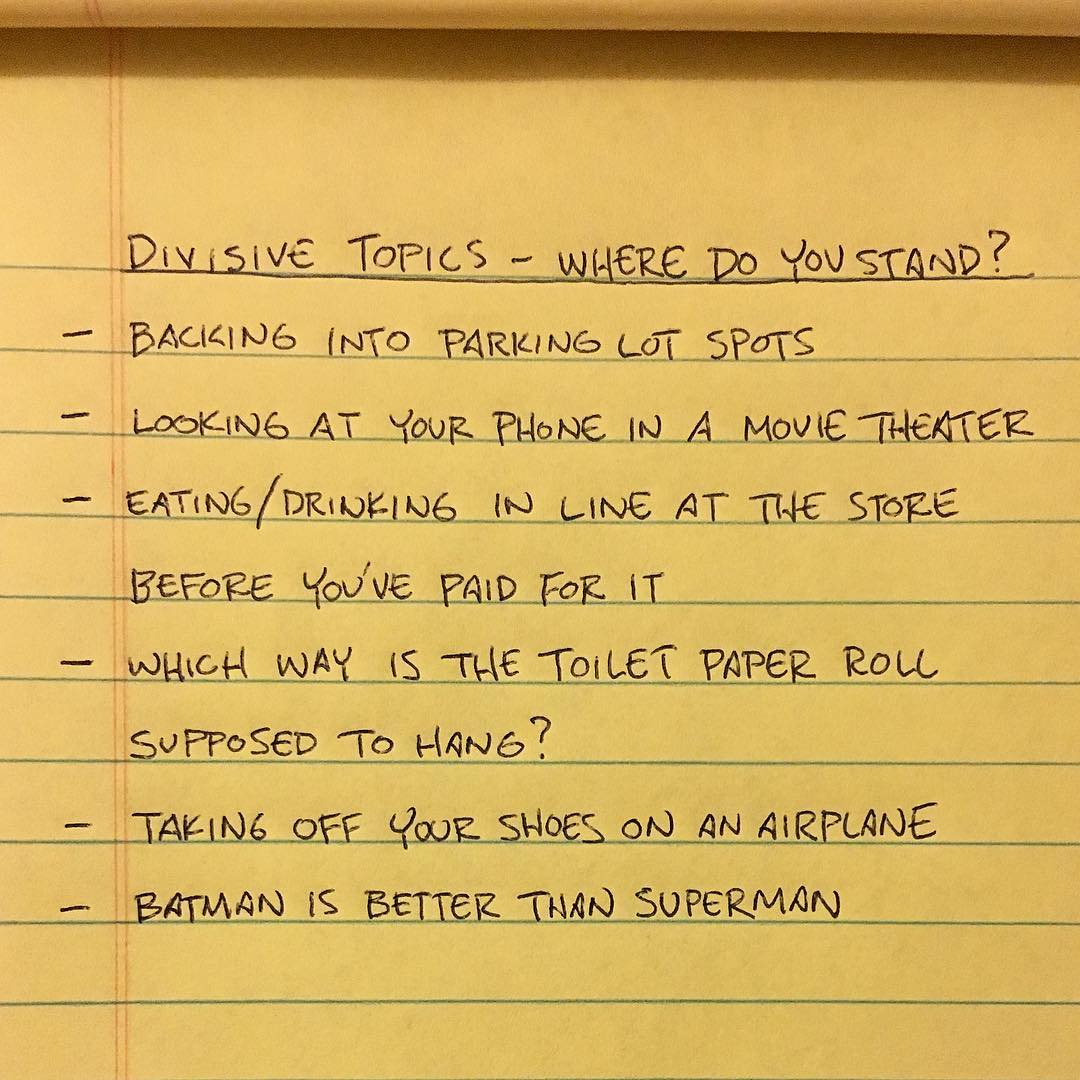 DIVISIVE TOPICS - WHERE DO YOU STAND?
- BACKING INTO PARKING LOT SPOTS
- LOOKING AT YOUR PHONE IN A MOVIE THEATER
- EATING/DRINKING IN LINE AT THE STORE
BEFORE YOU'VE PAID FOR IT
- WHICH WAY IS THE TOILET PAPER ROLL
SUPPOSED TO HANG?
- TAKING OFF YOUR SHOES ON AN AIRPLANE
- BATMAN IS BETTER THAN SUPERMAN